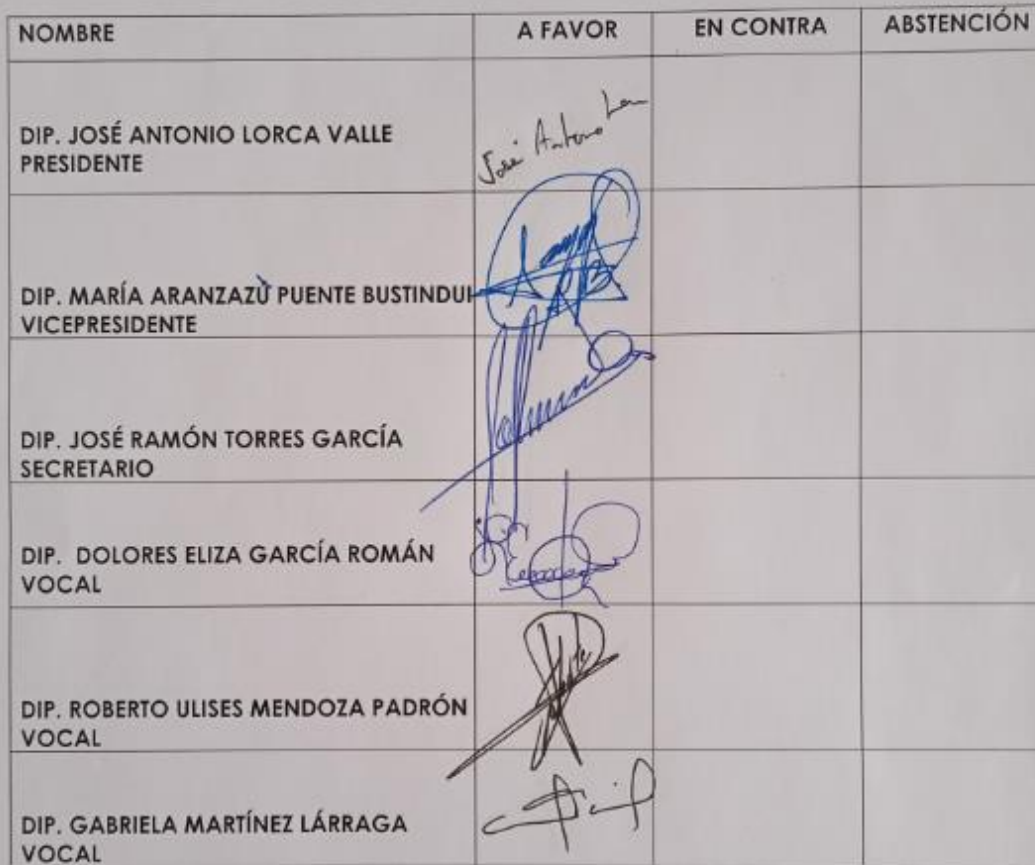 NOMBRE A FAVOR EN CONTRA ABSTENCIÓN
DIP. JOSÉ ANTONIO LORCA VALLE
PRESIDENTE
José Antonio
DIP. MARÍA ARANZAZÙ PUENTE BUSTINDUI
VICEPRESIDENTE
DIP. JOSÉ RAMÓN TORRES GARCÍA
SECRETARIO
DIP. DOLORES ELIZA GARCÍA ROMÁN
VOCAL
DIP. ROBERTO ULISES MENDOZA PADRÓN
VOCAL
DIP. GABRIELA MARTÍNEZ LÁRRAGA
VOCAL